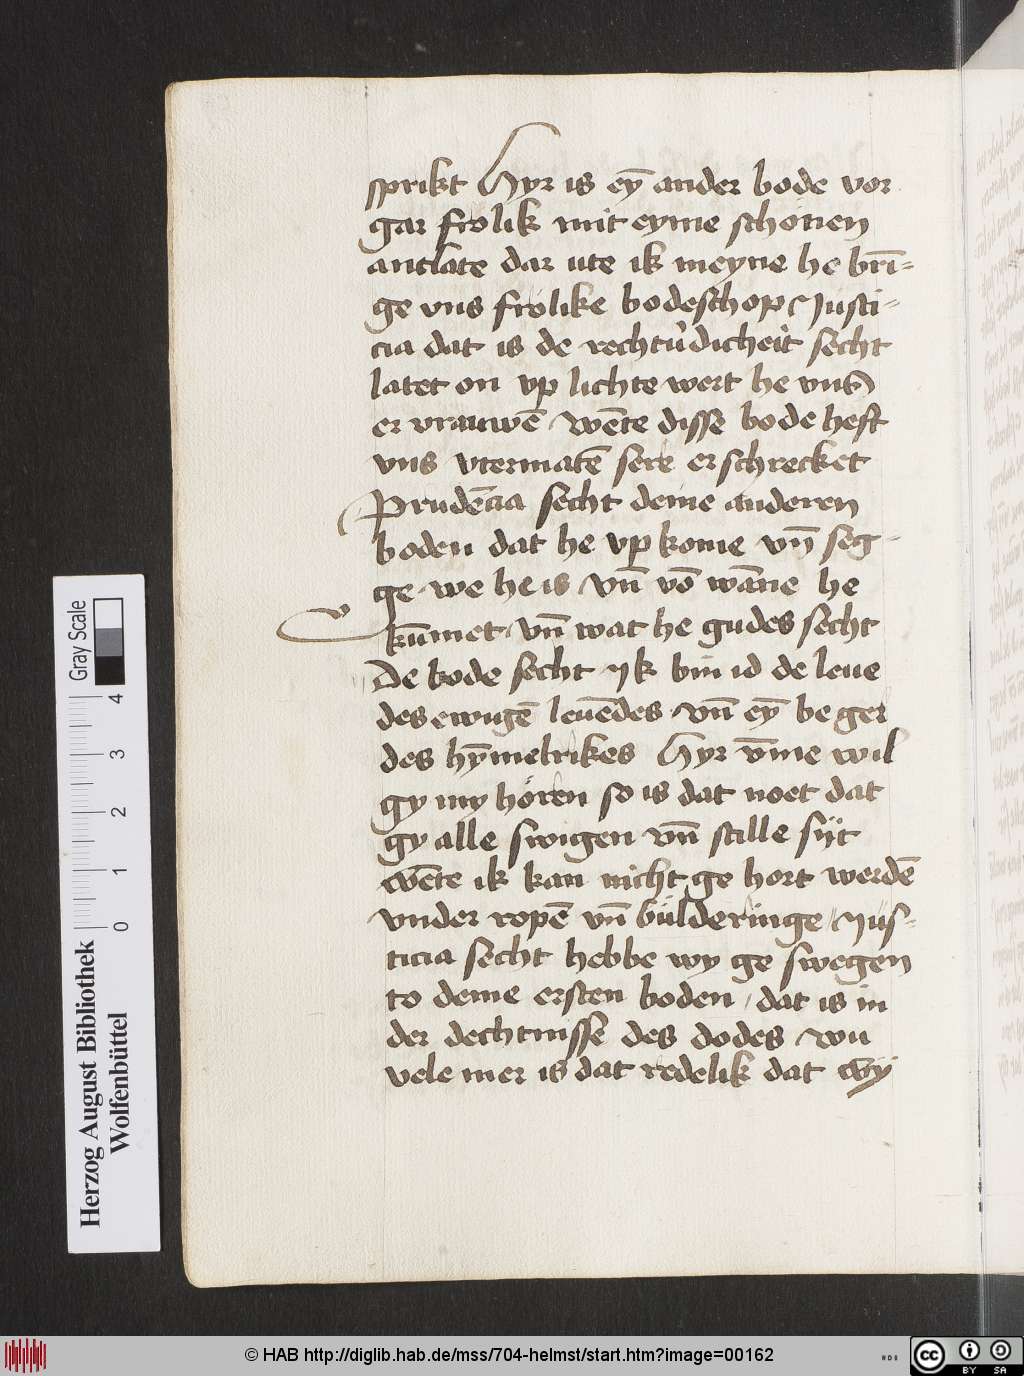 sprikt Hyr is eȳ ander bode vor
gar frolik mit eyme schönen
antlate dar ute ik meyne he brī-
ge vns frölike bodeschop Justi-
cia dat is de rechtůdicheit secht
latet on vp lichte wert he vns
er vrauwē wēte disse bode heft
vns vtermatē sere erschrecket
Prudēcia secht deme anderen
boden dat he vp kome vn̄ seg-
ge we he is vn̄ vō wāne he
kūmet vn̄ wat he gudes secht
De bode secht Ik bin id de leue
des ewigē leuēdes vn̄ eȳ beger
des hȳmelrikes Hyr v̄me wil
gy my hören so is dat noet dat
gy alle swigen vn̄ stille sÿt
wēte ik kan nicht ge hort werdē
vnder ropē vn̄ bülderinge Jüs-
ticia secht hebbe wy ge swegen
to deme ersten boden dat is in
der dechtnisse des dodes wu
vele mer is dat redelik dat wÿ
Herzog August Bibliothek
Wolfenbüttel
Gray Scale
0 1 2 3 4
© HAB http://diglib.hab.de/mss/704-helmst/start.htm?image=00162
cc BY SA